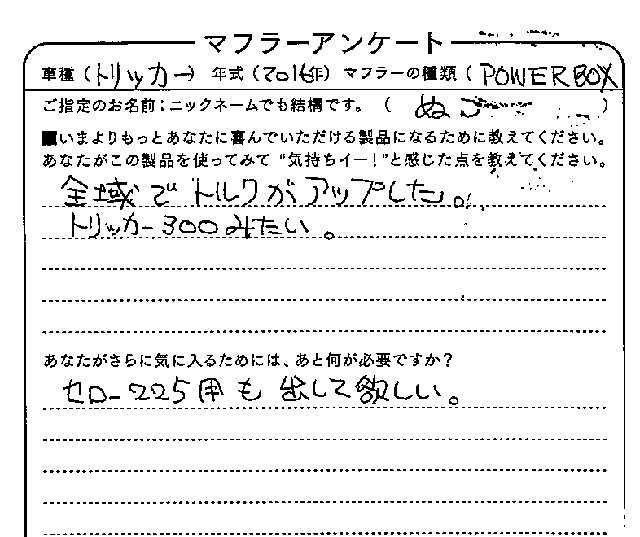 マフラーアンケート
車種（トリッカー） 年式（2016年） マフラーの種類（POWER BOX
ご指定のお名前：ニックネームでも結構です。（ ぬ ）
■いまよりもっとあなたに喜んでいただける製品になるために教えてください。
あなたがこの製品を使ってみて“気持ちイー！”と感じた点を教えてください。
全域でトルクがアップした。
トリッカー300みたい。
あなたがさらに気に入るためには、あと何が必要ですか？
セロー225用も出して欲しい。